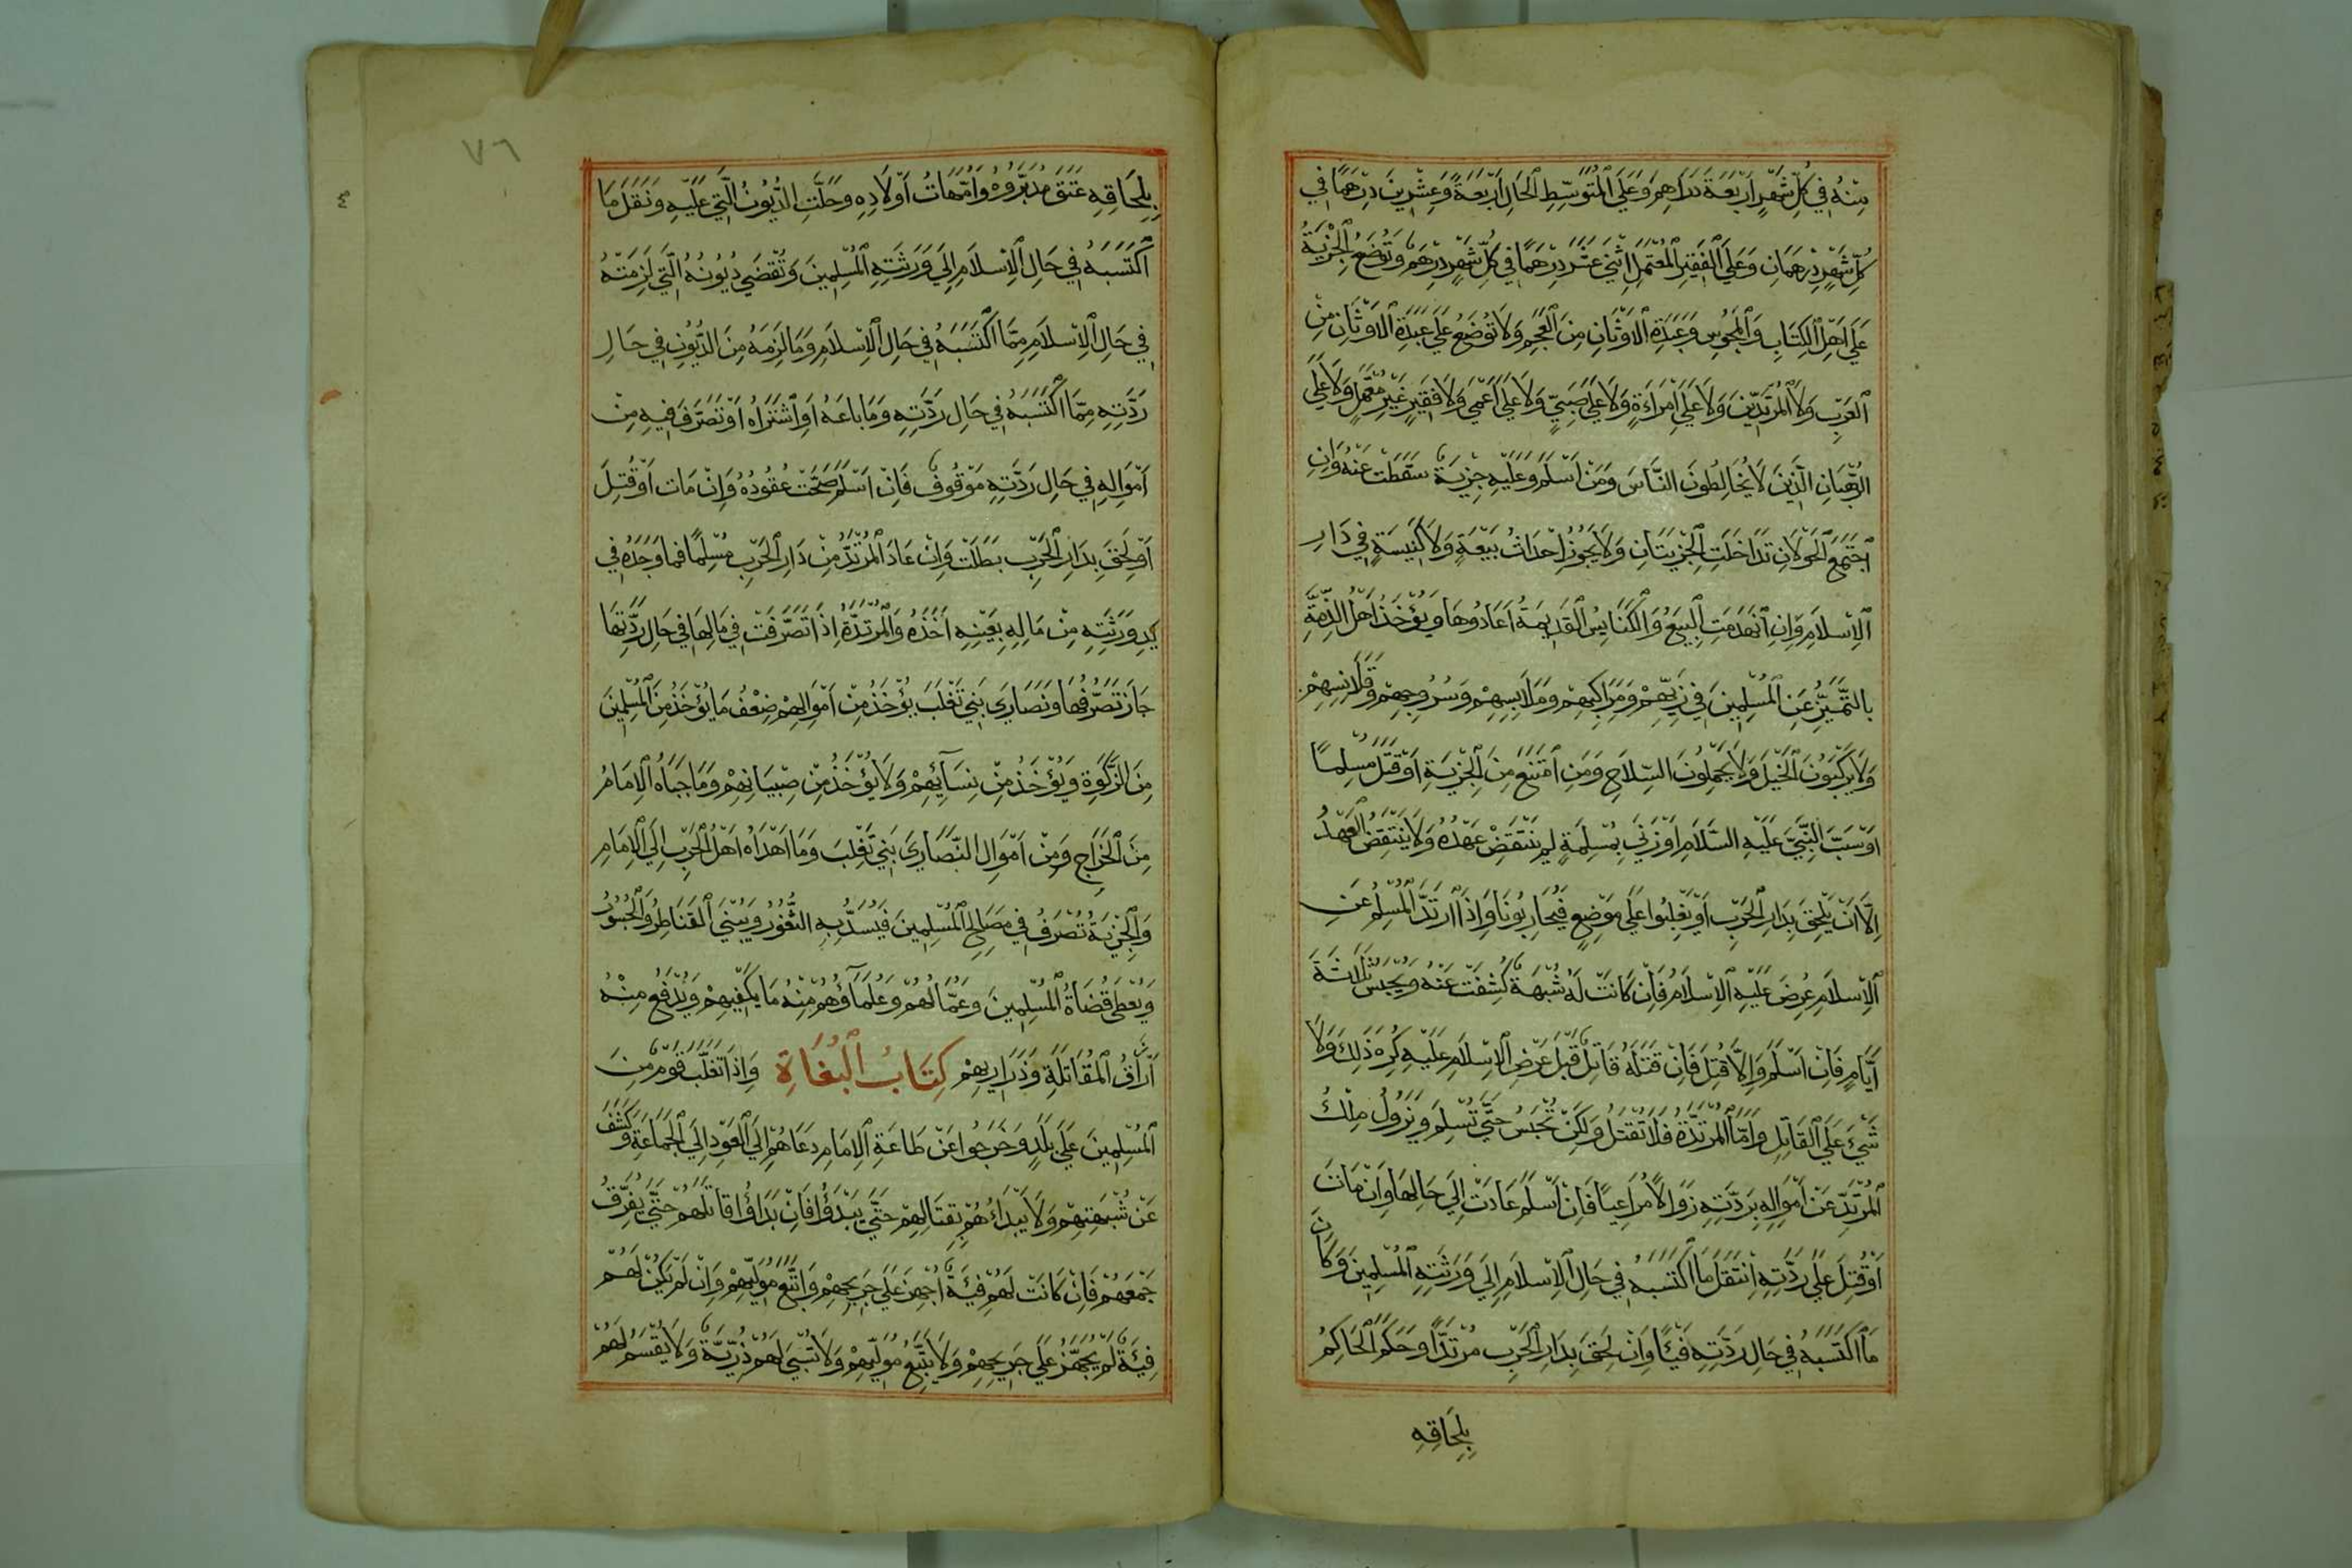 مِنْهُ فِي كُلِّ شَهْرٍ اَرْبَعَةَ دَرَاهِمَ وَعَلَي الْمُتَوَسِّطِ الْحَالِ اَرْبَعَةً وَعِشْرِينَ دِرْهَمًا فِي
كُلِّ شَهْرٍ دِرْهَمَانِ وَعَلَي الْفَقِيرِ الْمُعْتَمِلِ اِثْنَيْ عَشَرَ دِرْهَمًا فِي كُلِّ شَهْرٍ دِرْهَمٌ وَتُوضَعُ الْجِزْيَةُ
عَلَي اَهْلِ الْكِتَابِ وَالْمَجُوسِ وَعَبَدَةِ الْاَوْثَانِ مِنَ الْعَجَمِ وَلَا تُوضَعُ عَلَي عَبَدَةِ الْاَوْثَانِ مِنَ
الْعَرَبِ وَلَا الْمُرْتَدِّينَ وَلَا عَلَي امْرَاَةٍ وَلَا عَلَي صَبِيٍّ وَلَا عَلَي اَعْمَي وَلَا فَقِيرٍ غَيْرِ مُعْتَمِلٍ وَلَا عَلَي
الرُّهْبَانِ الَّذِينَ لَا يُخَالِطُونَ النَّاسَ وَمَنْ اَسْلَمَ وَعَلَيْهِ جِزْيَةٌ سَقَطَتْ عَنْهُ وَاِنِ
اجْتَمَعَ الْحَوْلَانِ تَدَاخَلَتِ الْجِزْيَتَانِ وَلَا يَجُوزُ اِحْدَاثُ بَيْعَةٍ وَلَا كَنِيسَةٍ فِي دَارِ
الْاِسْلَامِ وَاِنِ انْهَدَمَتِ الْبِيَعُ وَالْكَنَايِسُ الْقَدِيمَةُ اَعَادُوهَا وَيُؤْخَذُ اَهْلُ الذِّمَّةِ
بِالتَّمَيُّزِ عَنِ الْمُسْلِمِينَ فِي زِيِّهِمْ وَمَرَاكِبِهِمْ وَمَلَابِسِهِمْ وَسُرُوجِهِمْ وَقَلَانِسِهِمْ
وَلَا يَرْكَبُونَ الْخَيْلَ وَلَا يَحْمِلُونَ السِّلَاحَ وَمَنِ امْتَنَعَ مِنَ الْجِزْيَةِ اَوْ قَتَلَ مُسْلِمًا
اَوْ سَبَّ النَّبِيَّ عَلَيْهِ السَّلَامُ اَوْ زَنَي بِمُسْلِمَةٍ لَمْ يَنْتَقِضْ عَهْدُهُ وَلَا يَنْتَقِضُ الْعَهْدُ
اِلَّا اَنْ يَلْحَقَ بِدَارِ الْحَرْبِ اَوْ يَغْلِبُوا عَلَي مَوْضِعٍ فَيُحَارِبُونَا وَاِذَا ارْتَدَّ الْمُسْلِمُ عَنِ
الْاِسْلَامِ عُرِضَ عَلَيْهِ الْاِسْلَامُ فَاِنْ كَانَتْ لَهُ شُبْهَةٌ كُشِفَتْ عَنْهُ وَيُحْبَسُ ثَلَاثَةَ
اَيَّامٍ فَاِنْ اَسْلَمَ وَاِلَّا قُتِلَ فَاِنْ قَتَلَهُ قَاتِلٌ قَبْلَ عَرْضِ الْاِسْلَامِ عَلَيْهِ كُرِهَ ذَلِكَ وَلَا
شَيْءَ عَلَي الْقَاتِلِ وَاَمَّا الْمُرْتَدَّةُ فَلَا تُقْتَلُ وَلَكِنْ تُحْبَسُ حَتَّي تُسْلِمَ وَيَزُولُ مِلْكُ
الْمُرْتَدِّ عَنْ اَمْوَالِهِ بِرَدَّتِهِ زَوَالًا مُرَاعِيًا فَاِنْ اَسْلَمَ عَادَتْ اِلَي حَالِهَا وَاِنْ مَاتَ
اَوْ قُتِلَ عَلَي رِدَّتِهِ اِنْتَقَلَ مَا اكْتَسَبَهُ فِي حَالِ الْاِسْلَامِ اِلَي وَرَثَتِهِ الْمُسْلِمِينَ وَكَانَ
مَا اكْتَسَبَهُ فِي حَالِ رِدَّتِهِ فَيْئًا وَاِنْ لَحِقَ بِدَارِ الْحَرْبِ مُرْتَدًّا وَحَكَمَ الْحَاكِمُ
بِلِحَاقِهِ
٧٦
بِلِحَاقِهِ عَتَقَ مُدَبَّرُوهُ وَاُمَّهَاتُ اَوْلَادِهِ وَحَلَّتِ الدُّيُونُ الَّتِي عَلَيْهِ وَنُقِلَ مَا
اكْتَسَبَهُ فِي حَالِ الْاِسْلَامِ اِلَي وَرَثَتِهِ الْمُسْلِمِينَ وَتُقْضَي دُيُونُهُ الَّتِي لَزِمَتْهُ
فِي حَالِ الْاِسْلَامِ مِمَّا اكْتَسَبَهُ فِي حَالِ الْاِسْلَامِ وَمَا لَزِمَهُ مِنَ الدُّيُونِ فِي حَالِ
رَدَّتِهِ مِمَّا اكْتَسَبَهُ فِي حَالِ رَدَّتِهِ وَمَا بَاعَهُ اَوِ اشْتَرَاهُ اَوْ تَصَرَّفَ فِيهِ مِنْ
اَمْوَالِهِ فِي حَالِ رَدَّتِهِ مَوْقُوفٌ فَاِنْ اَسْلَمَ صَحَّتْ عُقُودُهُ وَاِنْ مَاتَ اَوْ قُتِلَ
اَوْ لَحِقَ بِدَارِ الْحَرْبِ بَطَلَتْ وَاِنْ عَادَ الْمُرْتَدُّ مِنْ دَارِ الْحَرْبِ مُسْلِمًا فَمَا وَجَدَهُ فِي
يَدِ وَرَثَتِهِ مِنْ مَالِهِ بِعَيْنِهِ اَخَذَهُ وَالْمُرْتَدَّةُ اِذَا تَصَرَّفَتْ فِي مَالِهَا فِي حَالِ رِدَّتِهَا
جَازَ تَصَرُّفُهَا وَنَصَارَي بَنِي تَغْلَبَ يُؤْخَذُ مِنْ اَمْوَالِهِمْ ضِعْفُ مَا يُؤْخَذُ مِنَ الْمُسْلِمِينَ
مِنَ الزَّكَوةِ وَيُؤْخَذُ مِنْ نِسَآئِهِمْ وَلَا يُؤْخَذُ مِنْ صِبْيَانِهِمْ وَمَا جَبَاهُ الْاِمَامُ
مِنَ الْخَرَاجِ وَمِنْ اَمْوَالِ النَّصَارَي بَنِي تَغْلِبَ وَمَا اَهْدَاهُ اَهْلُ الْحَرْبِ اِلَي الْاِمَامِ
وَالْجِزْيَةُ تُصْرَفُ فِي مَصَالِحِ الْمُسْلِمِينَ فَيُسَدُّ بِهِ الثُّغُورُ وَيُبْنَي الْقَنَاطِرُ وَالْجُسُورُ
وَيُعْطَي قُضَاةُ الْمُسْلِمِينَ وَعُمَّالُهُمْ وَعُلَمَآؤُهُمْ مِنْهُ مَا يَكْفِيهِمْ وَيُدْفَعُ مِنْهُ
اَرْزَاقُ الْمُقَاتَلَةِ وَذَرَارِيهِمْ كِتَابُ الْبُغَاةِ وَاِذَا تَغَلَّبَ قَوْمٌ مِنَ
الْمُسْلِمِينَ عَلَي بَلَدٍ وَخَرَجُوا عَنْ طَاعَةِ الْاِمَامِ دَعَاهُمْ اِلَي الْعَوْدِ اِلَي الْجَمَاعَةِ وَكَشَفَ
عَنْ شُبْهَتِهِمْ وَلَا يَبْدَاُهُمْ بِقِتَالِهِمْ حَتَّي يَبْدَؤُا فَاِنْ بَدَاؤُا قَاتَلَهُمْ حَتَّي يُفَرِّقَ
جَمْعَهُمْ فَاِنْ كَانَتْ لَهُمْ فِئَةٌ اُجْهِزَ عَلَي جَرِيحِهِمْ وَاتُّبِعَ مُوَلِّيهِمْ وَاِنْ لَمْ يَكُنْ لَهُمْ
فِئَةٌ لَمْ يُجْهَزْ عَلَي جَرِيحِهِمْ وَلَا يُتَّبَعُ مُوَلِّيهِمْ وَلَا تُسْبَي لَهُمْ ذُرِّيَّةٌ وَلَا يُقْسَمُ لَهُمْ